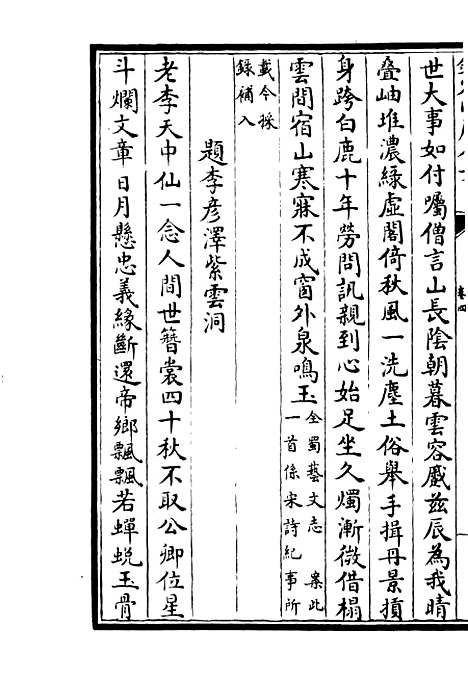 世大事如付囑僧言山長陰朝暮雲容慼兹辰為我晴
叠岫堆濃緑虛閣倚秋風一洗塵土俗舉手揖丹景摃
身跨白鹿十年勞問訊親到心始足坐久燭漸微借榻
雲間宿山寒寐不成窗外泉鳴玉全蜀藝文志 案此
一首係宋詩紀事所
載今採
録補入
題李彦澤紫雲洞
老李天中仙一念人間世簪裳四十秋不取公卿位星
斗爛文章日月懸忠義緣斷還帝鄉飄飄若蟬蜕玉骨
卷四